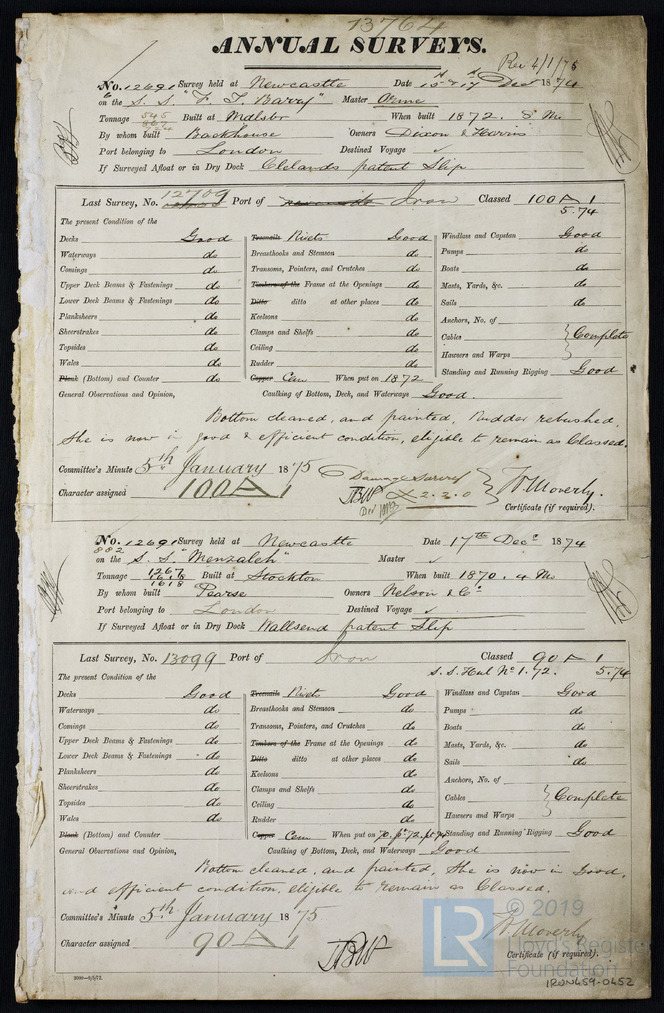 13764
ANNUAL SURVEYS.
Rec 4/1/75
No. 12691 Survey held at Newcastle Date 15th & 17th Decr 1874
on the S. S. "F. T. Barry" Master Orme
Tonnage 545 867 Built at Mdlsbro When built 1872. 8 Mo
By whom built Backhouse Owners Dixon & Harris
Port belonging to London Destined Voyage ✓
If Surveyed Afloat or in Dry Dock Clelands patent Slip
Last Survey, No. 12709 Port of Iron Classed 100 A 1
5.74
The present Condition of the
Decks Good Treenails Rivets Good Windlass and Capstan Good
Waterways do Breasthooks and Stemson do Pumps do
Comings do Transoms, Pointers, and Crutches do Boats do
Upper Deck Beams & Fastenings do Timbers of the Frame at the Openings do Masts, Yards, &c. do
Lower Deck Beams & Fastenings do Ditto ditto at other places do Sails do
Planksheers do Keelsons do Anchors, No. of
Sheerstrakes do Clamps and Shelfs do Cables } Complete
Topsides do Ceiling do Hawsers and Warps
Wales do Rudder do Standing and Running Rigging Good
Plank (Bottom) and Counter do Copper Cem When put on 1872
General Observations and Opinion, Caulking of Bottom, Deck, and Waterways Good.
Bottom cleaned, and painted, Rudder rebushed,
She is now in good & efficient condition, eligible to remain as Classed.
Committee's Minute 5th January 1875 Damage Survey
Character assigned 100 A 1 £2.2.0 W. Moverly.
Certificate (if required).
No. 12691 Survey held at Newcastle Date 17th Decr 1874
882
on the S. S. "Menzaleh" Master ✓
Tonnage 1267 1618 1618 Built at Stockton When built 1870. 4 Mo
By whom built Pearse Owners Nelson & Co
Port belonging to London Destined Voyage ✓
If Surveyed Afloat or in Dry Dock Wallsend patent Slip
Last Survey, No. 13099 Port of Iron Classed 90 A 1
S. S. Hul No 1. 72. 5.74
The present Condition of the
Decks Good Treenails Rivets Good Windlass and Capstan Good
Waterways do Breasthooks and Stemson do Pumps do
Comings do Transoms, Pointers, and Crutches do Boats do
Upper Deck Beams & Fastenings do Timbers of the Frame at the Openings do Masts, Yards, &c. do
Lower Deck Beams & Fastenings do Ditto ditto at other places do Sails do
Planksheers do Keelsons do Anchors, No. of
Sheerstrakes do Clamps and Shelfs do Cables } Complete
Topsides do Ceiling do Hawsers and Warps
Wales do Rudder do
Plank (Bottom) and Counter Copper Cem When put on 70. Standing and Running Rigging Good
General Observations and Opinion, Caulking of Bottom, Deck, and Waterways Good
Bottom cleaned, and painted, She is now in Good,
and efficient condition, eligible to remain as Classed.
Committee's Minute 5th January 1875
Character assigned 90 A 1 W. Moverly
Certificate (if required).
LR © 2019
Lloyd's Register
Foundation
IRON459-0452